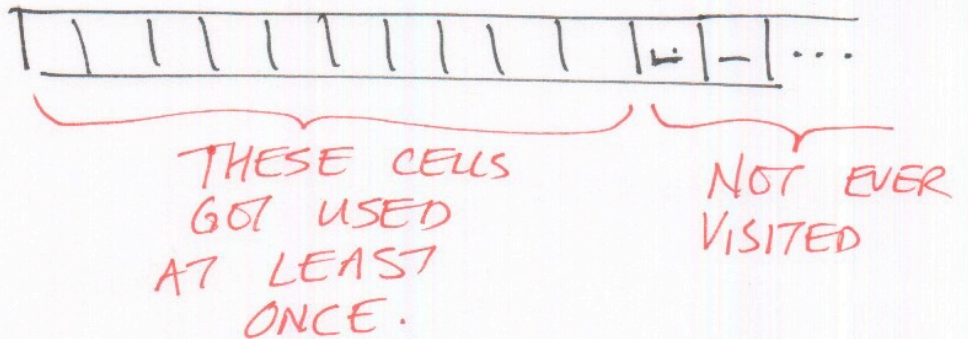 ...
THESE CELLS
GOT USED
AT LEAST
ONCE.
NOT EVER
VISITED